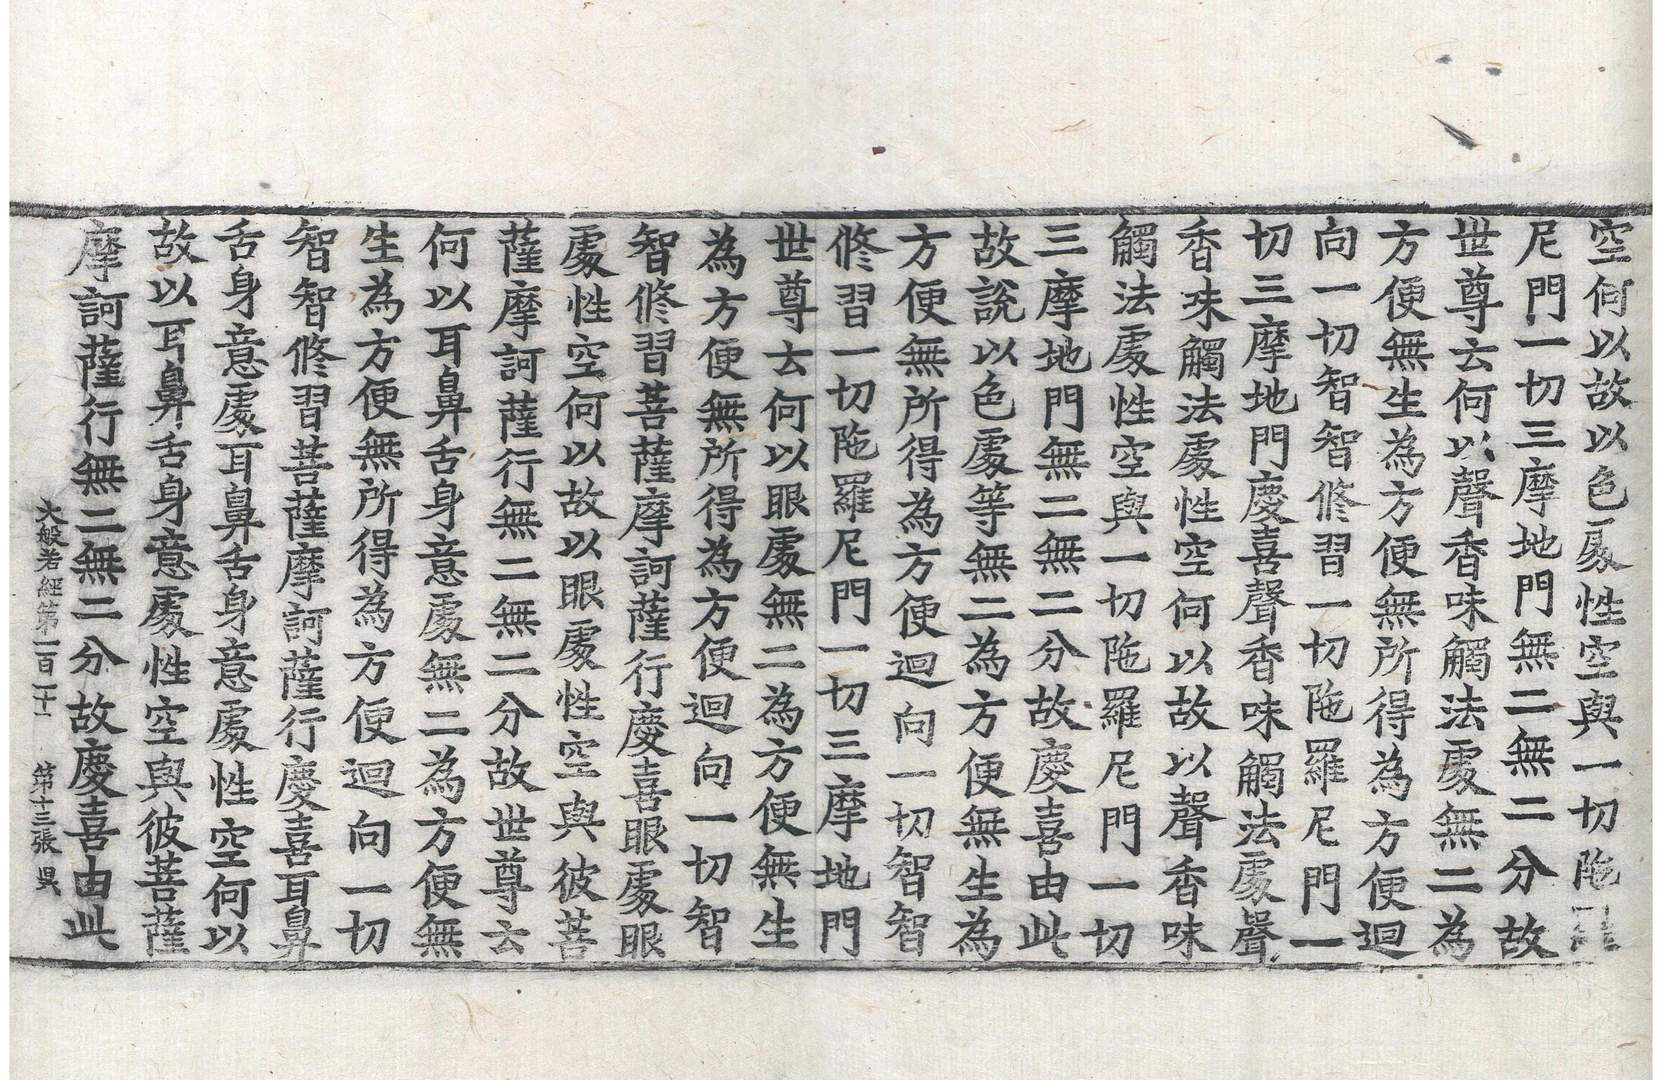 空何以故以色處性空與一切陁羅
尼門一切三摩地門無二無二分故
世尊云何以聲香味觸法處無二為
方便無生為方便無所得為方便迴
向一切智智修習一切陁羅尼門一
切三摩地門慶喜聲香味觸法處聲
香味觸法處性空何以故以聲香味
觸法處性空與一切陁羅尼門一切
三摩地門無二無二分故慶喜由此
故說以色處等無二為方便無生為
方便無所得為方便迴向一切智智
修習一切陁羅尼門一切三摩地門
世尊云何以眼處無二為方便無生
為方便無所得為方便迴向一切智
智修習菩薩摩訶薩行慶喜眼處眼
處性空何以故以眼處性空與彼菩
薩摩訶薩行無二無二分故世尊云
何以耳鼻舌身意處無二為方便無
生為方便無所得為方便迴向一切
智智修習菩薩摩訶薩行慶喜耳鼻
舌身意處耳鼻舌身意處性空何以
故以耳鼻舌身意處性空與彼菩薩
摩訶薩行無二無二分故慶喜由此
大般若經第一百二十一 第十三張 昃